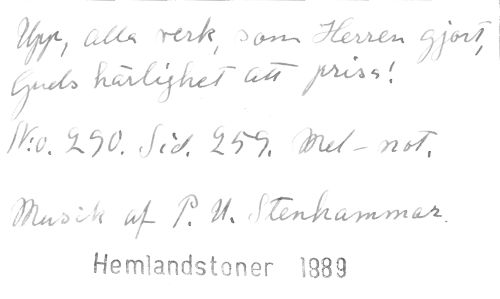 Upp, alla verk, som Herren gjort,
Guds härlighet att prisa!
N:o. 290. Sid. 259. Mel-not.
Musik af P. U. Stenhammar.
Hemlandstoner 1889